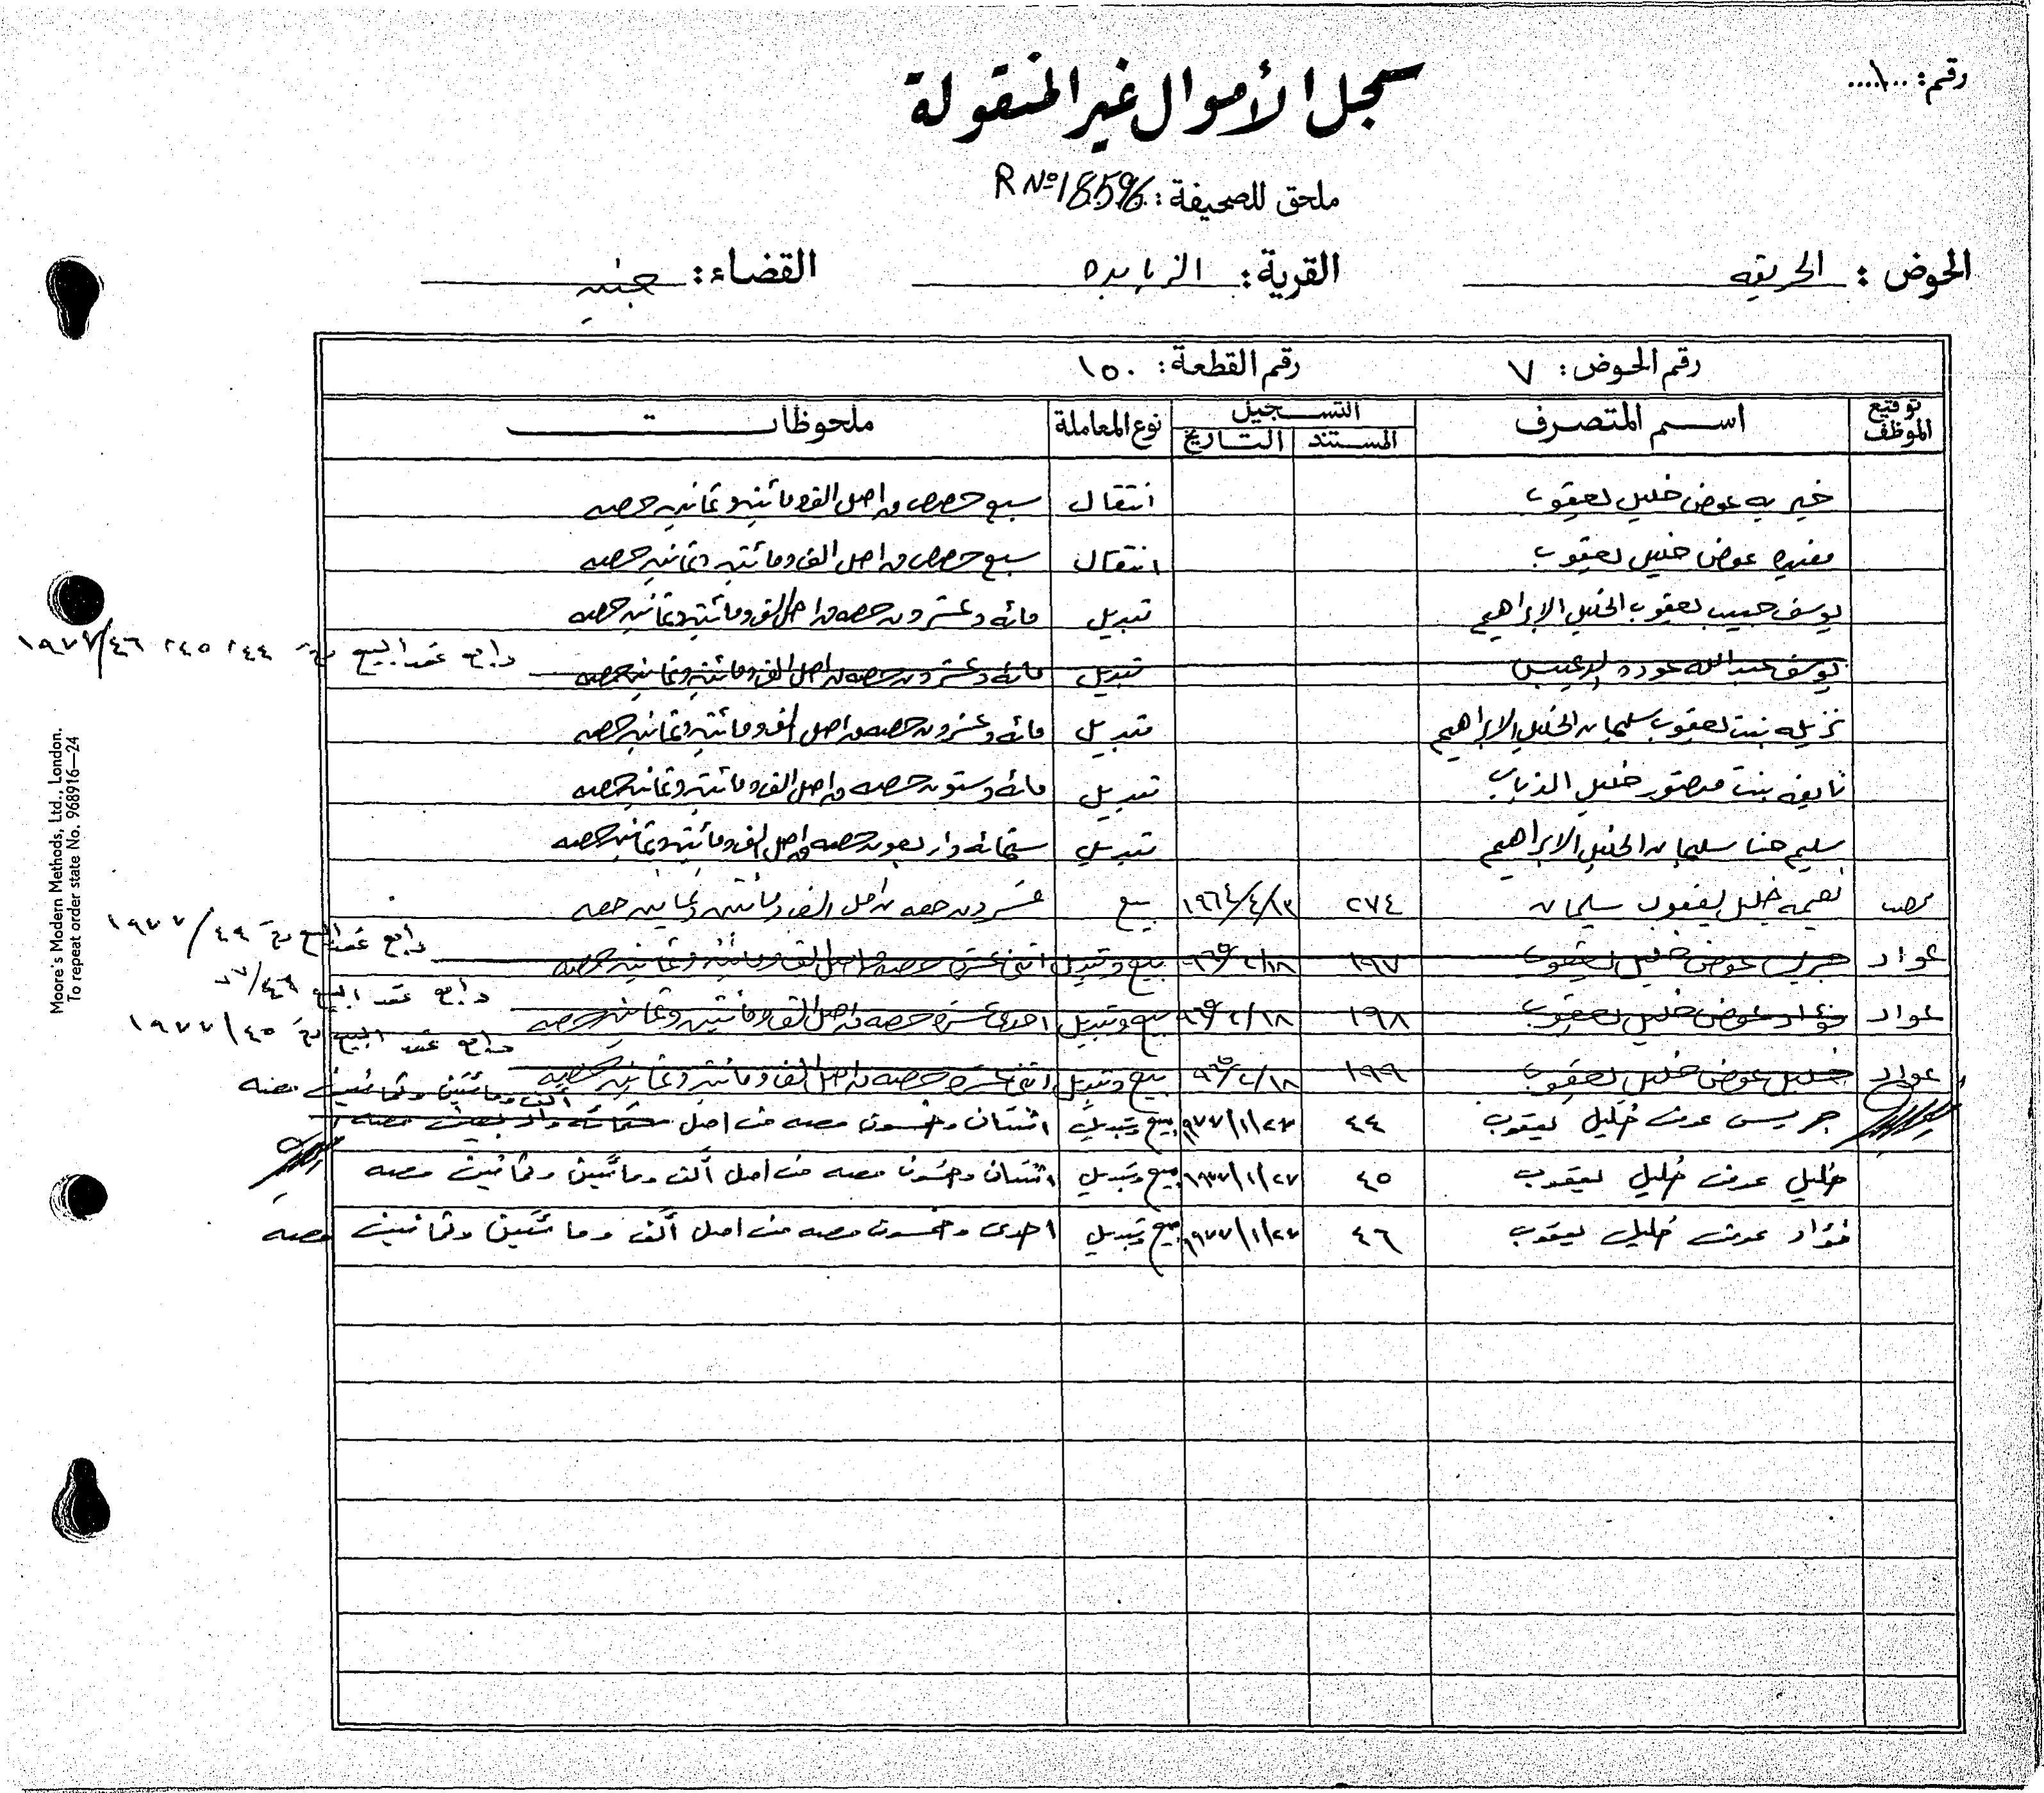 رقم: ...١...
سجل الأموال غير المنقولة
ملحق للصحيفة: R Nº 18596
الحوض: الحريقه القرية: الزبابده القضاء: جنين
رقم الحوض: ٧ رقم القطعة: ١٥٠
توقيع الموظف اسم المتصرف التسجيل نوع المعاملة ملحوظات
المستند التاريخ
خيريه عوض خليل يعقوب انتقال سبع حصص من اصل الف ومائتين وثمانين حصه
مفيده عوض خليل يعقوب انتقال سبع حصص من اصل الف ومائتين وثمانين حصه
يوسف حبيب يعقوب الخليل الابراهيم تبديل مائه وعشرون حصه من اصل الف ومائتين وثمانين حصه
يوسف عبدالله عوده تبديل مائه وعشرون حصه من اصل الف ومائتين وثمانين حصه راجع عقد البيع ٤٤، ٤٥، ٤٦/١٩٧٧
نزيله بنت يعقوب سليمان الخليل الابراهيم تبديل مائه وعشرون حصه من اصل الف ومائتين وثمانين حصه
نايفه بنت منصور خليل الذياب تبديل مائه وستون حصه من اصل الف ومائتين وثمانين حصه
سليم حنا سليمان الخليل الابراهيم تبديل ستمائه واربعون حصه من اصل الف ومائتين وثمانين حصه
نعيمه خليل يعقوب سليمان ٢٧٤ ١٩٦٤/٤/١٣ بيع عشرون حصه من اصل الف ومائتين وثمانين حصه
عواد جريس عوض خليل يعقوب ١٩٧ ٩٦٥/٢/١٨ بيع وتبديل اثنى عشره حصه من اصل الف ومائتين وثمانين حصه راجع عقد البيع ٤٤/١٩٧٧
عواد فؤاد عوض خليل يعقوب ١٩٨ ٩٦٥/٢/١٨ بيع وتبديل احدى عشره حصه من اصل الف ومائتين وثمانين حصه راجع عقد البيع ٤٦/٧٧
عواد خليل عوض خليل يعقوب ١٩٩ ٩٦٥/٢/١٨ بيع وتبديل اثنى عشره حصه من اصل الف ومائتين وثمانين حصه راجع عقد البيع ٤٥/١٩٧٧
ألف ومائتين وثمانين حصه
جريس عوض خليل يعقوب ٤٤ ١٩٧٧/١/٢٧ بيع وتبديل اثنتان وخمسون حصه من اصل ستمائة واربعين حصه
خليل عوض خليل يعقوب ٤٥ ١٩٧٧/١/٢٧ بيع وتبديل اثنتان وخمسون حصه من اصل ألف ومائتين وثمانين حصه
فؤاد عوض خليل يعقوب ٤٦ ١٩٧٧/١/٢٧ بيع وتبديل احدى وخمسون حصه من اصل ألف ومائتين وثمانين حصه
Moore's Modern Methods, Ltd., London.
To repeat order state No. 968916—24